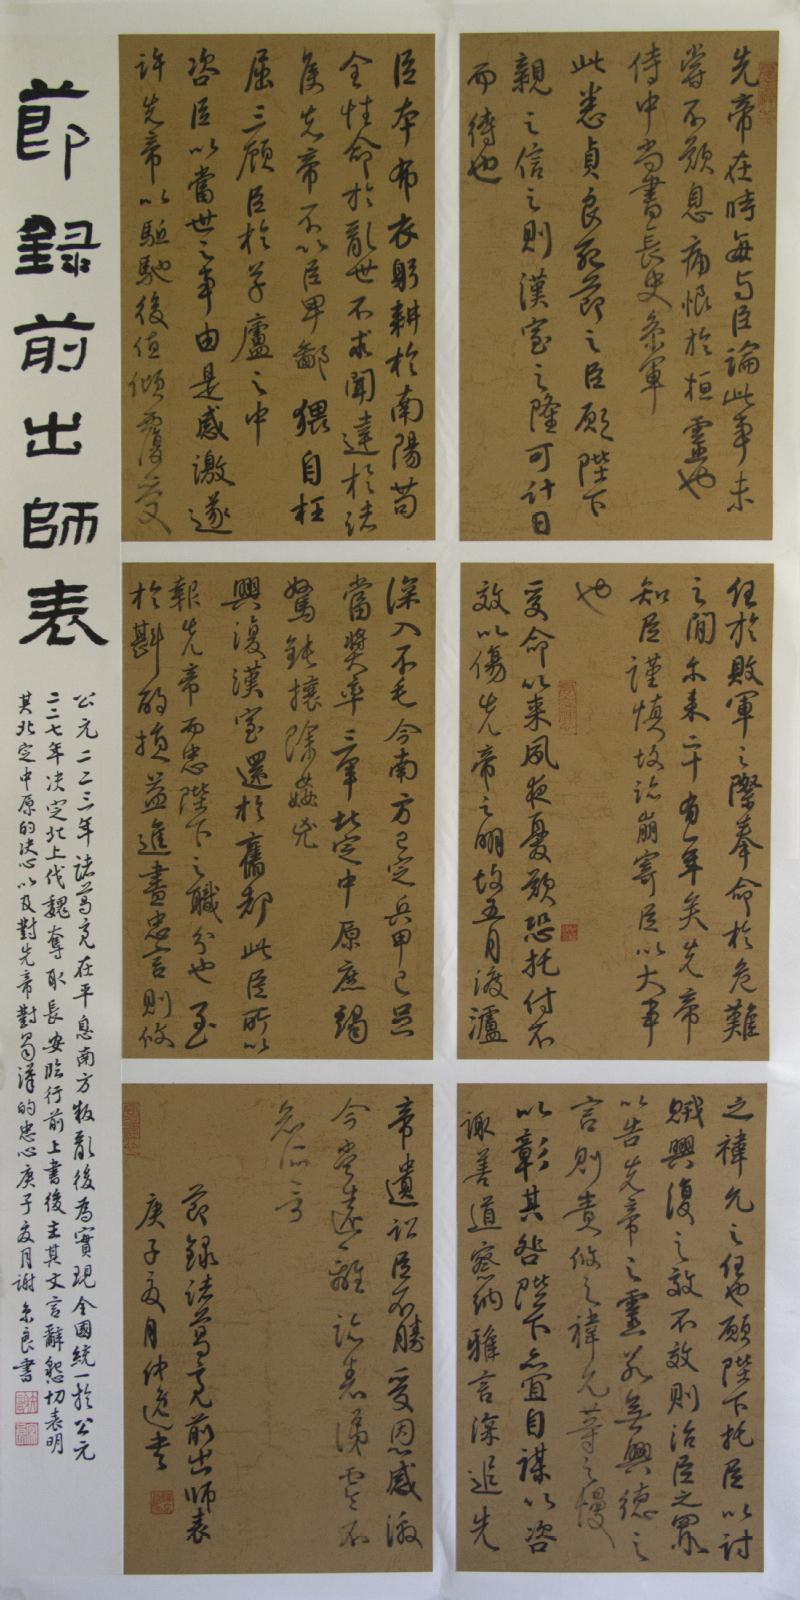 先帝在時每与臣論此事未
嘗不歎息痛恨於桓靈也
侍中尚書長史參軍
此悉貞良死節之臣願陛下
親之信之則漢室之隆可計日
而待也
臣本布衣躬耕於南陽苟
全性命於亂世不求聞達於諸
侯先帝不以臣卑鄙猥自枉
屈三顧臣於草廬之中
咨臣以當世之事由是感激遂
許先帝以驅馳後值傾覆受
任於敗軍之際奉命於危難
之間尔来二十有一年矣先帝
知臣謹慎故臨崩寄臣以大事
也
受命以来夙夜憂歎恐托付不
效以傷先帝之明故五月渡瀘
深入不毛今南方已定兵甲已足
當獎率三軍北定中原庶竭
駑鈍攘除姦凶
興復漢室還於舊都此臣所以
報先帝而忠陛下之職分也至
於斟酌損益進盡忠言則攸
之禕允之任也願陛下托臣以討
賊興復之效不效則治臣之罪
以告先帝之靈若無興德之
言則責攸之禕允等之慢
以彰其咎陛下亦宜自謀以咨
諏善道察納雅言深追先
帝遺詔臣不勝受恩感激
今當遠離臨表涕零不
知所言
節錄諸葛亮前出師表
庚子夏月仲逸書
節録前出師表
公元二二三年諸葛亮在平息南方叛亂後為實現全國統一於公元
二二七年决定北上伐魏奪取長安臨行前上書後主其文言辭懇切表明
其北定中原的决心以及對先帝對蜀漢的忠心庚子夏月謝余良書